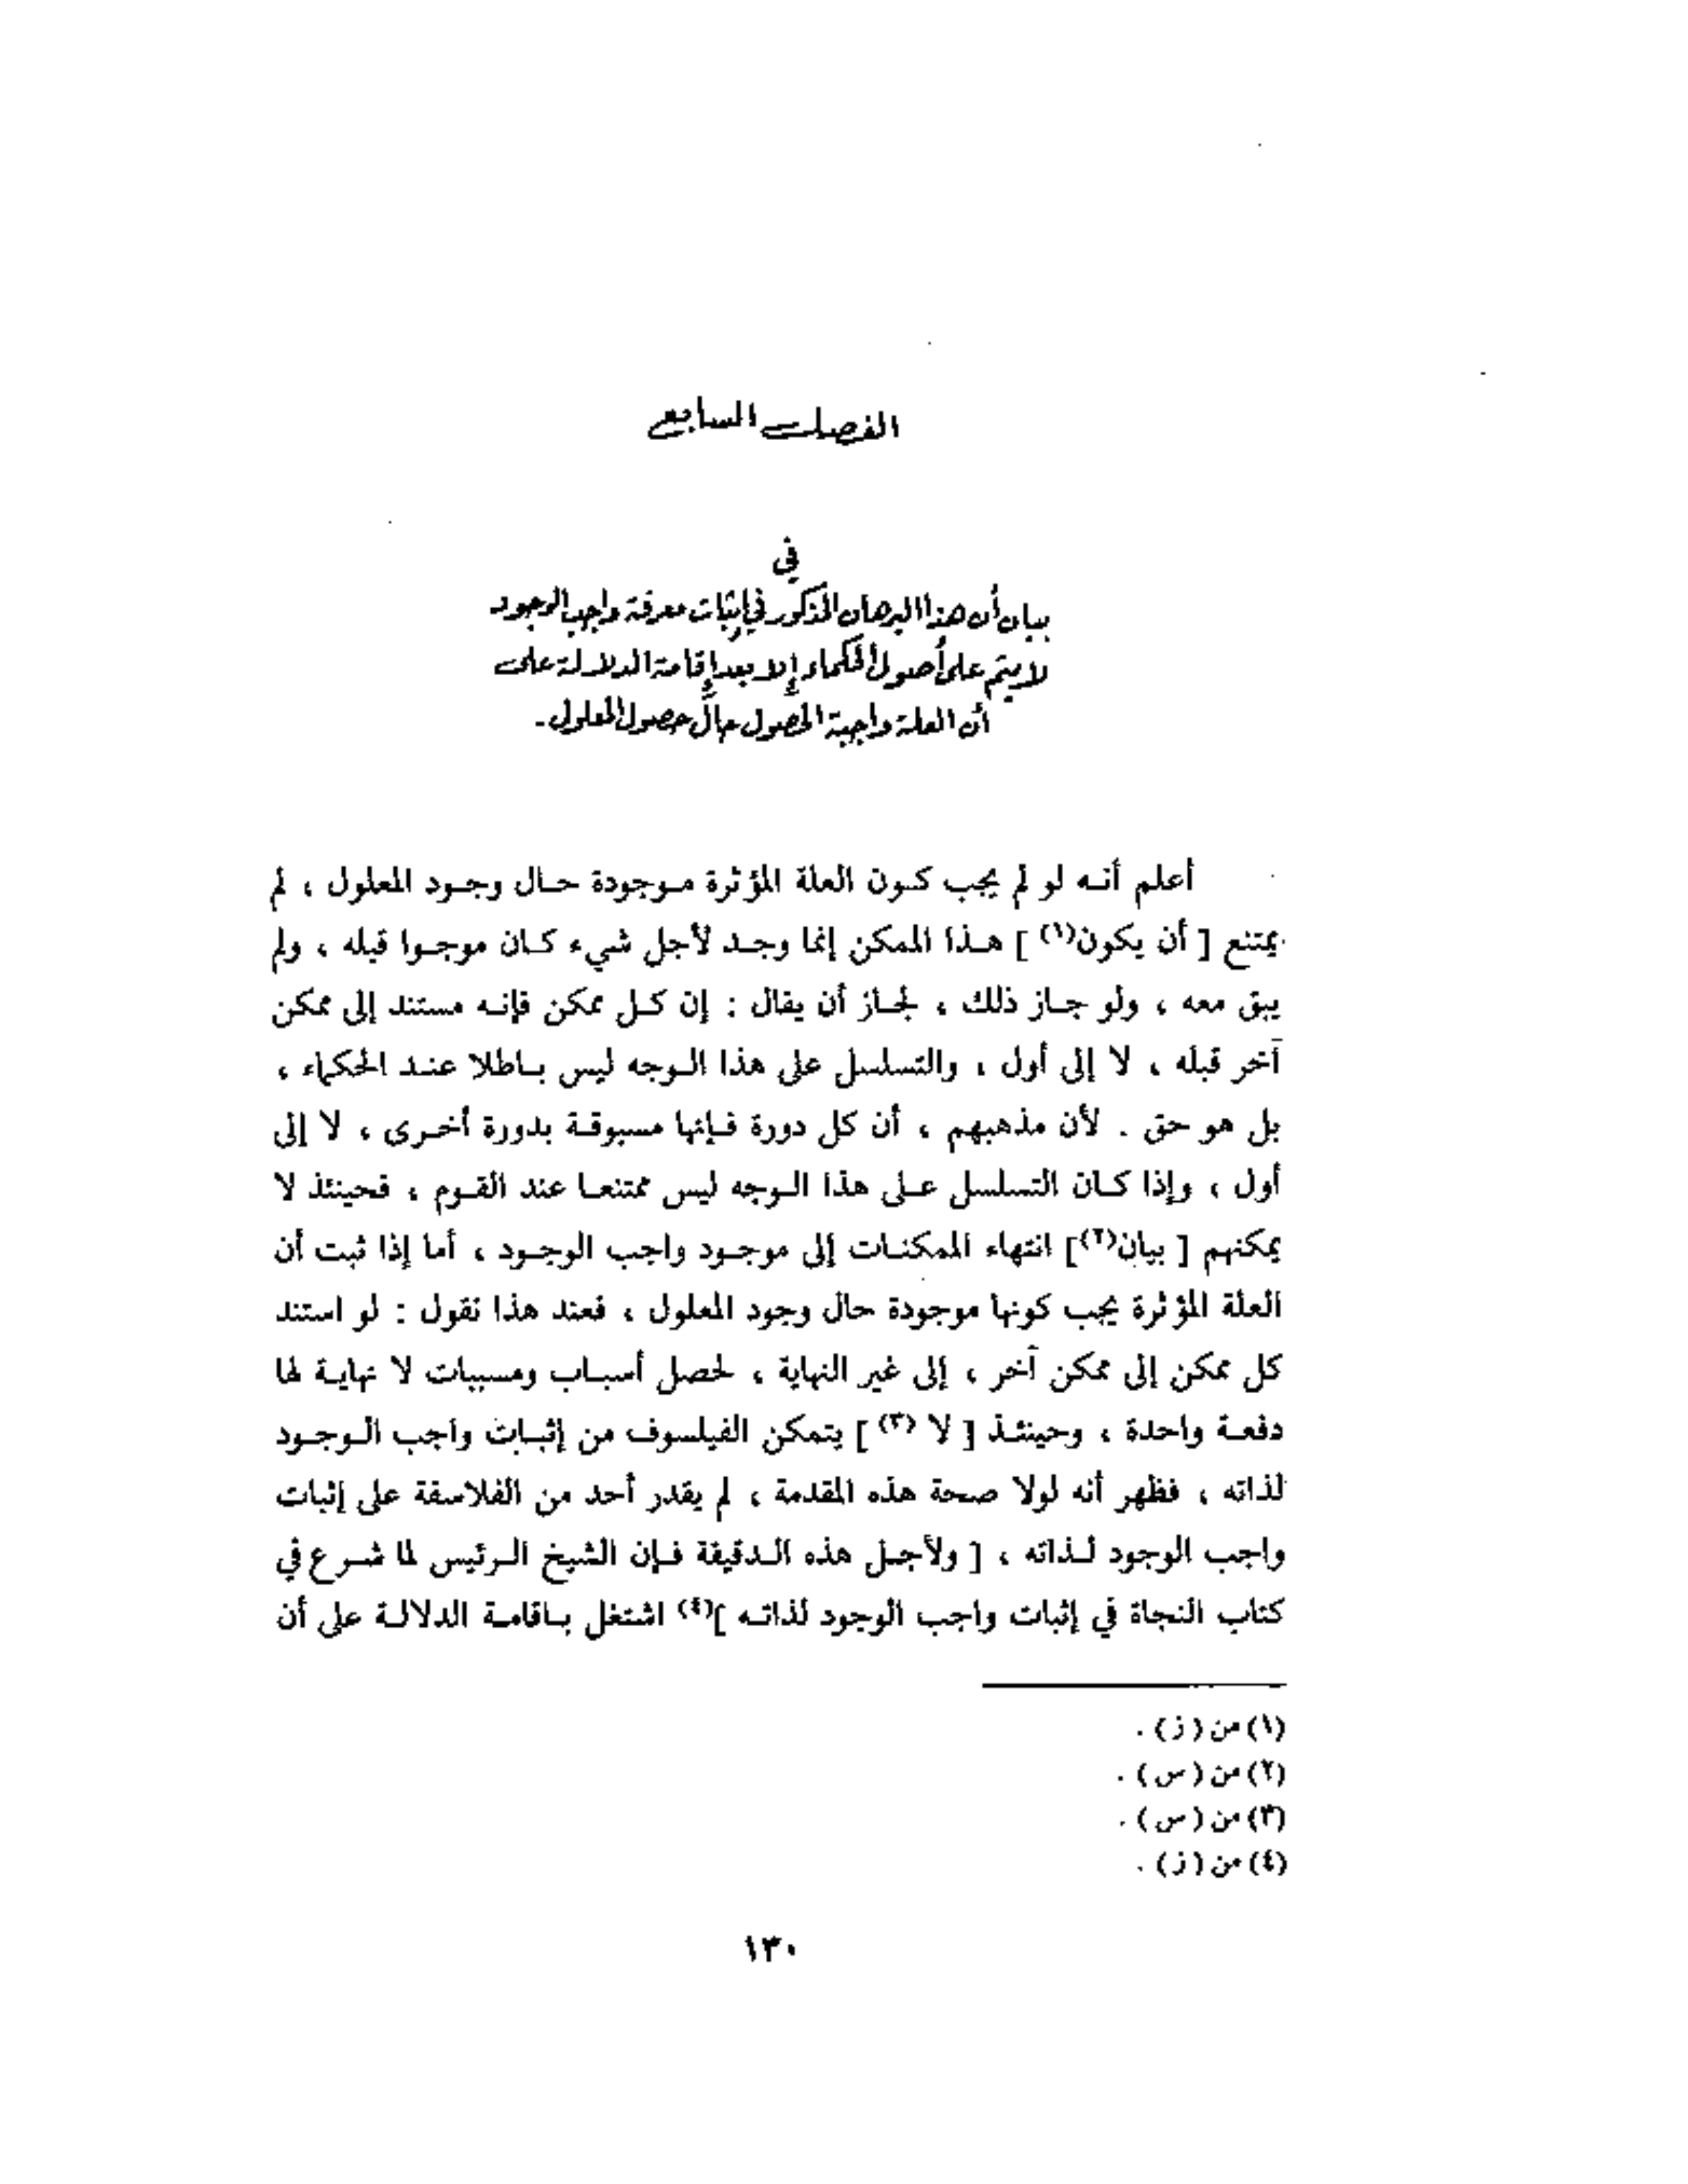 الفصل السابع
في
بيان أن هذا البرهان المذكور في إثبات معرفة واجب الوجود
لا يتم على أصول الحكماء إلا بعد إقامة الدلالة على
أن العلة واجبة الحصول حال حصول المعلول.
أعلم أنه لو لم يجب كون العلة المؤثرة موجودة حال وجود المعلول ، لم
يمتنع [ أن يكون(١) ] هذا الممكن إنما وجد لأجل شيء كان موجوا قبله ، ولم
يبق معه ، ولو جاز ذلك ، لجاز أن يقال : إن كل ممكن فإنه مستند إلى ممكن
آخر قبله ، لا إلى أول ، والتسلسل على هذا الوجه ليس باطلا عند الحكماء ،
بل هو حق . لأن مذهبهم ، أن كل دورة فإنها مسبوقة بدورة أخرى ، لا إلى
أول ، وإذا كان التسلسل على هذا الوجه ليس ممتنعا عند القوم ، فحينئذ لا
يمكنهم [ بيان(٢)] انتهاء الممكنات إلى موجود واجب الوجود ، أما إذا ثبت أن
العلة المؤثرة يجب كونها موجودة حال وجود المعلول ، فعند هذا نقول : لو استند
كل ممكن إلى ممكن آخر ، إلى غير النهاية ، لحصل أسباب ومسببات لا نهاية لها
دفعة واحدة ، وحينئذ [ لا (٣) ] يتمكن الفيلسوف من إثبات واجب الوجود
لذاته ، فظهر أنه لولا صحة هذه المقدمة ، لم يقدر أحد من الفلاسفة على إثبات
واجب الوجود لذاته ، [ ولأجل هذه الدقيقة فإن الشيخ الرئيس لما شرع في
كتاب النجاة في إثبات واجب الوجود لذاته ](٤) اشتغل باقامة الدلالة على أن
(١) من ( ز ) .
(٢) من ( س ) .
(٣) من ( س ) .
(٤) من ( ز ) .
١٣٠